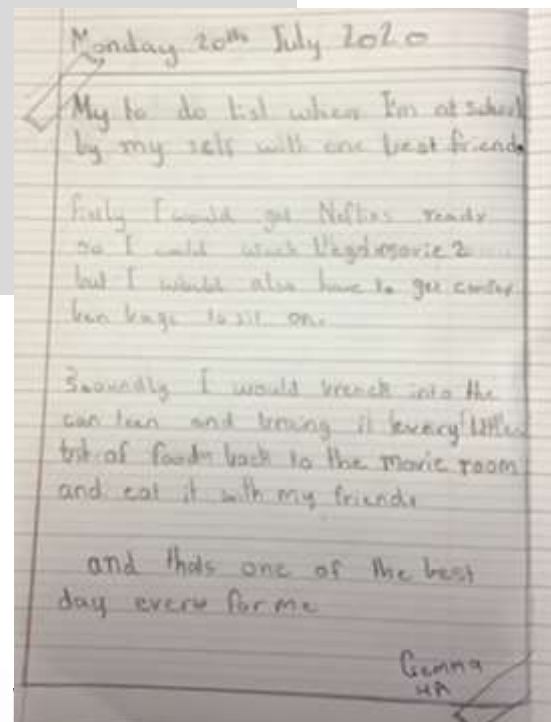 Monday 20th July 2020
My to do list when I'm at school
by my self with one best friend.
I would get Netflix ready
so I could watch 2
but I would also have to get
ben bags to sit on.
I would break into the
can teen and bring every little
bit of food back to the movie room
and eat it with my friends
and thats one of the best
day every for me
Gemma
4A